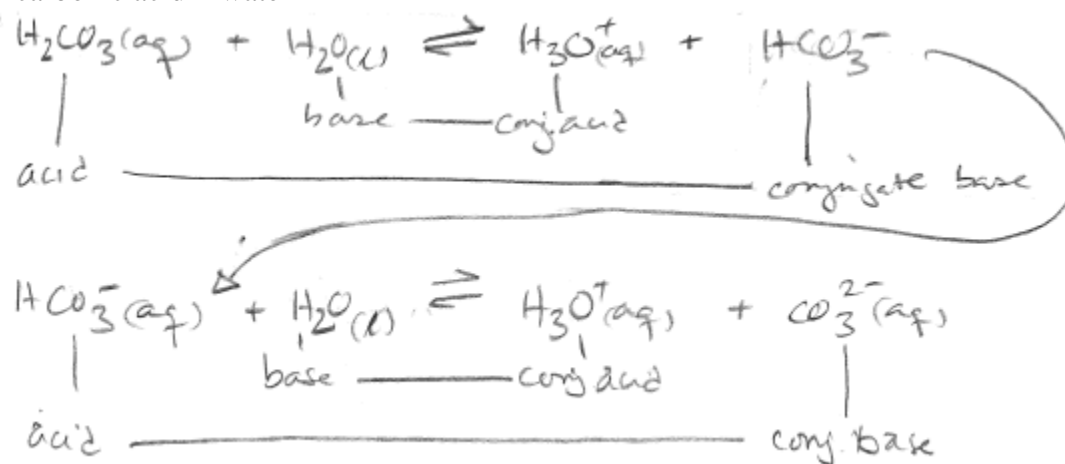 H₂CO₃(aq) + H₂O(l) ⇌ H₃O⁺(aq) + HCO₃⁻
base conj. acid
acid conjugate base
HCO₃⁻(aq) + H₂O(l) ⇌ H₃O⁺(aq) + CO₃²⁻(aq)
base conj acid
acid conj. base